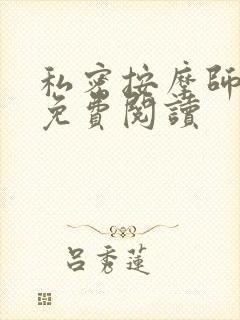 私密按摩師
免費閱讀
吕秀蓮